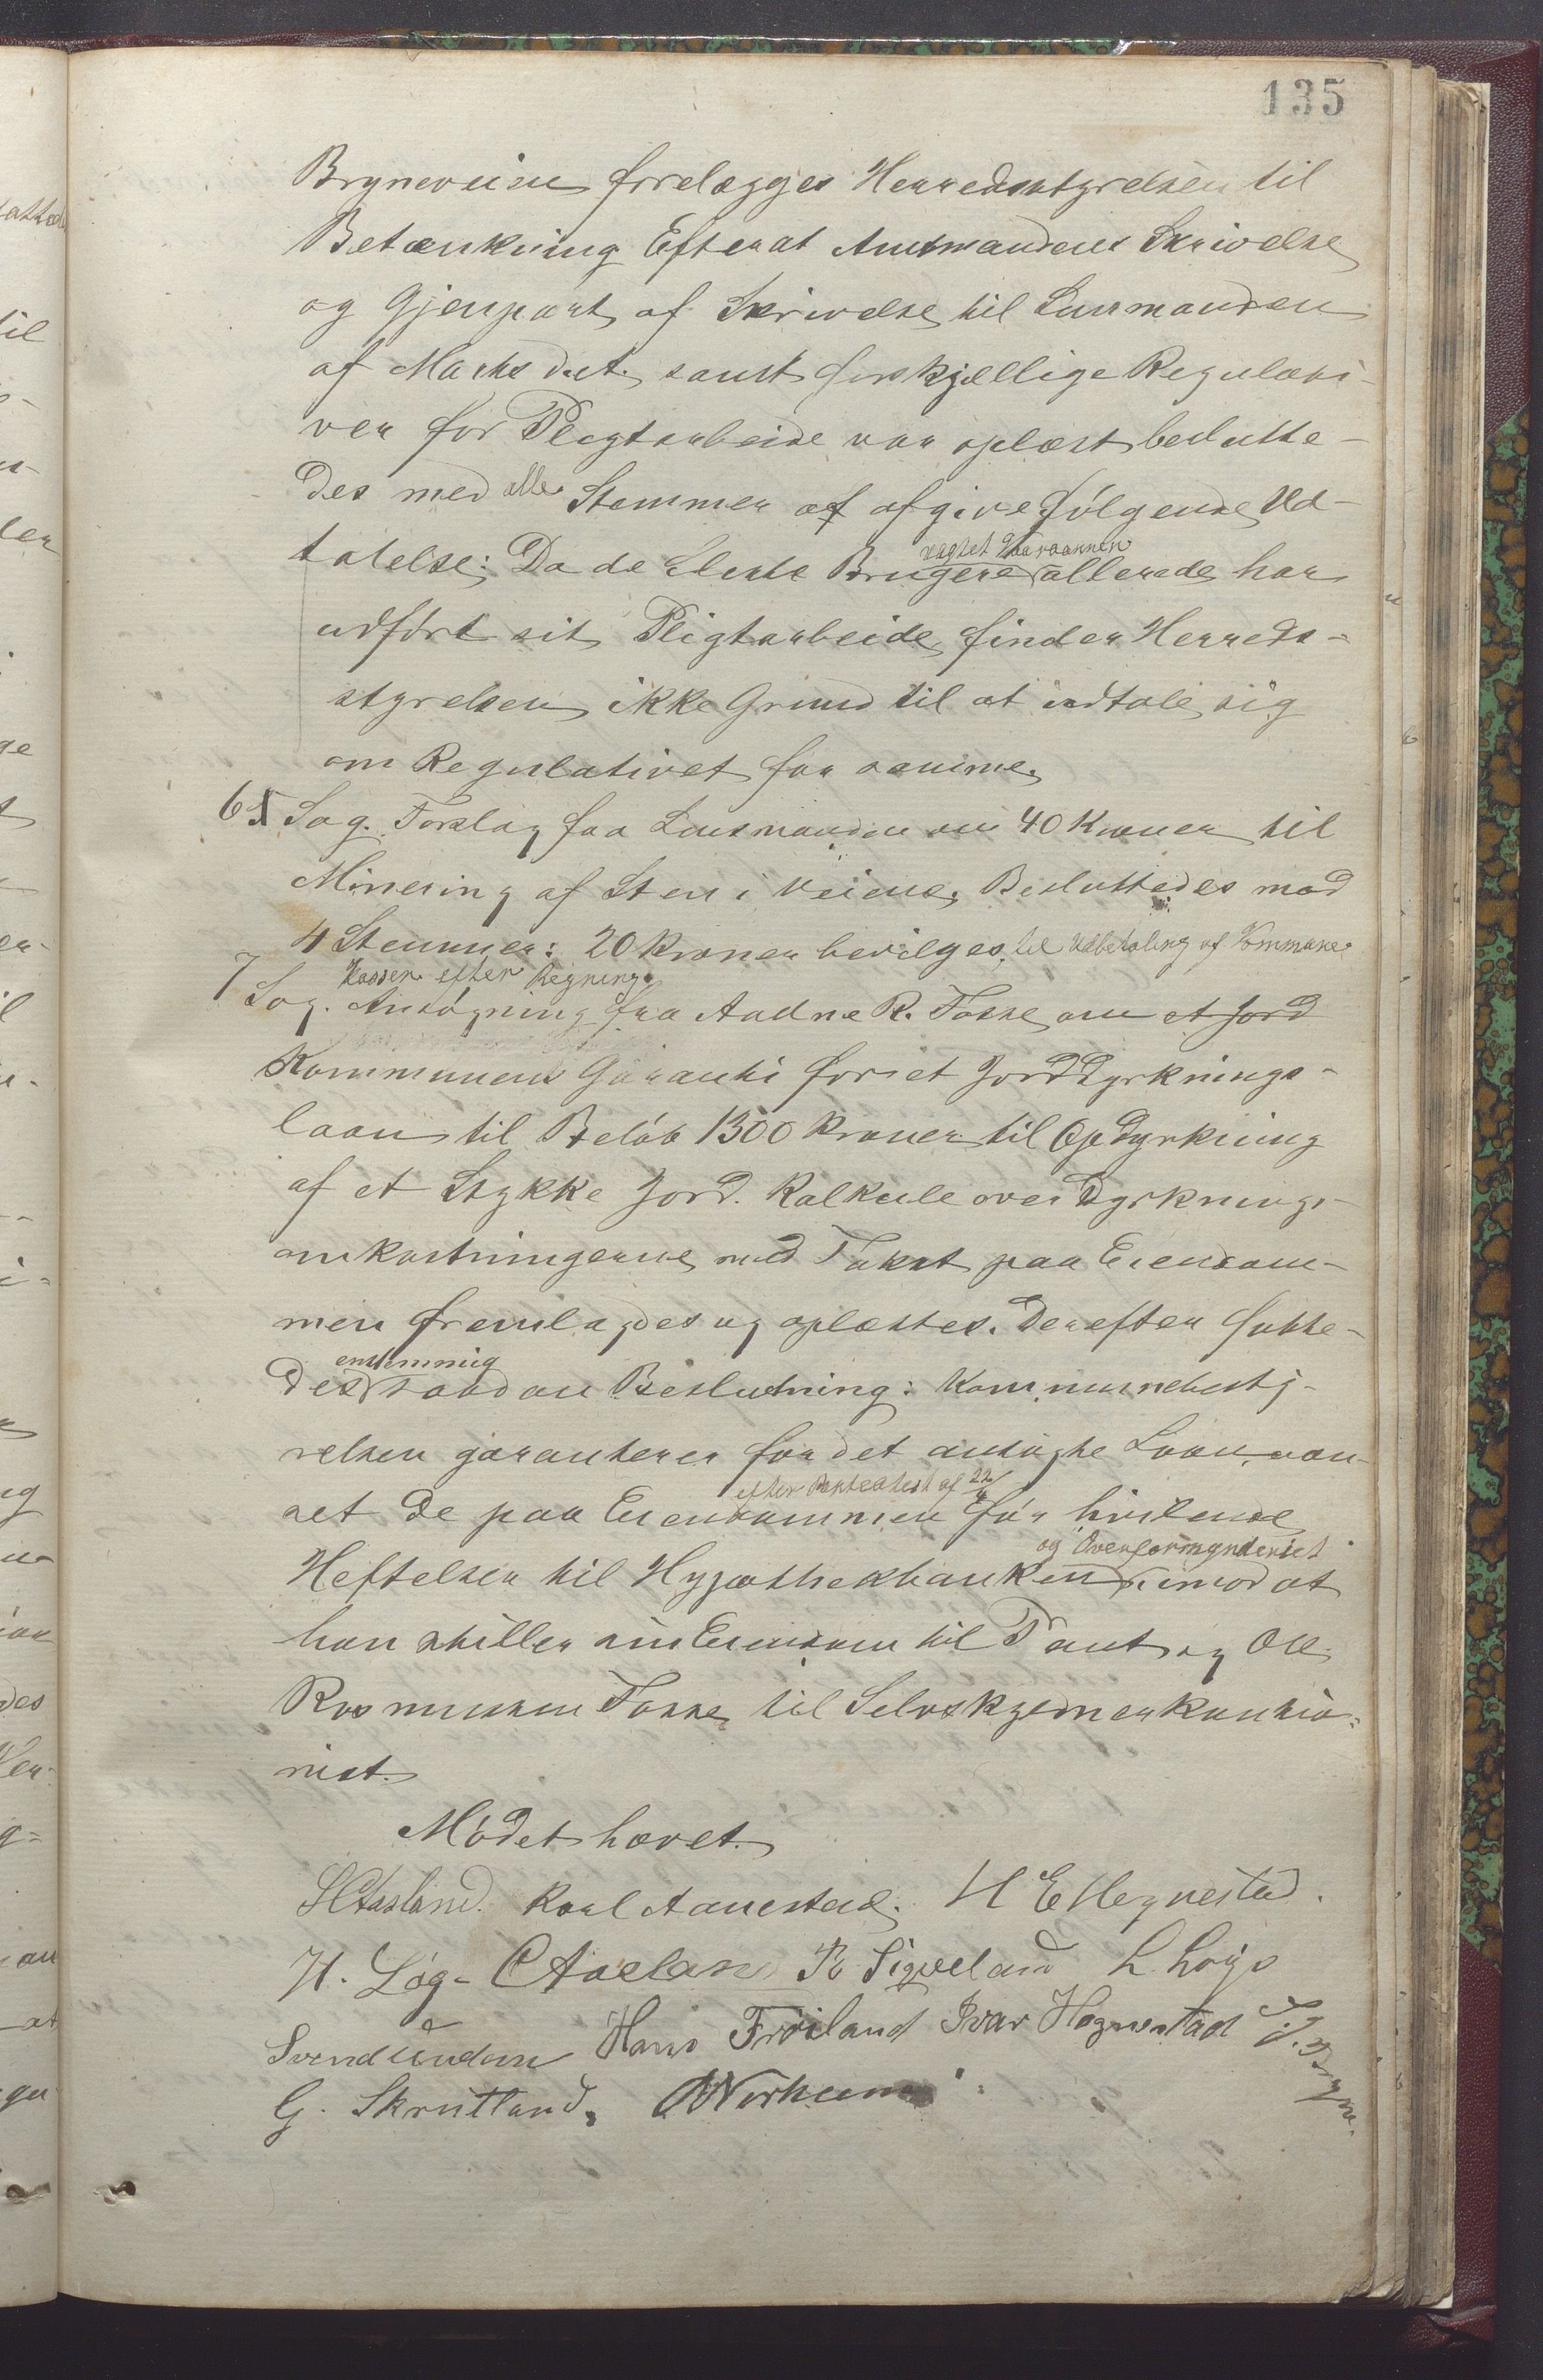 135
Bryneveien forelægges Herredsstyrelsen til
Betænkning Efterat Amtmandens Skrivelse
og Gjenpart af Skrivelse til Lensmanden
af Marts d.A. samt forskjællige Regulati-
ver for Pligtarbeide var oplæst beslutte-
des med alle Stemmer at afgive følgende Ud-
talelse: Da de fleste Brugere vegtet Vaaraannen allerede har
udført sit Pligtarbeide finder Herreds-
styrelsen ikke Grund til at udtale sig
om Regulativet for samme.
6 Sag. Forslag fra Lensmanden om 40 Kroner til
Minering af Sten i Veiene. Besluttedes mod
4 Stemmer: 20 Kroner bevilges til Udbetaling af Kommune
Kassen efter Regning.
7 Sag. Ansøgning fra Aadne R. Fosse om et Jord
Kommunens Garanti for et Jorddyrknings-
laan til Beløb 1300 Kroner til Opdyrkning
af et Stykke Jord. Kalkule over Dyrknings-
omkostningerne med Takst paa Eiendom-
men fremlagdes og oplæstes. Derefter fatte-
des enstemmig saadan Beslutning: Kommunebesty-
relsen garanterer for det ansøgte Laan, uan-
set de paa Eiendommen efter Panteattest af 22/4 før hvilende
Heftelser til Hypothekbanken og Overformynderiet imod at
han stiller sin Eiendom til Pant og Ole
Rasmussen Fosse til Selvskyldnerkautio-
nist.
Mødet hævet.
H Aasland. Karl Aanestad. H E Hegnestad.
H. Løg- C Aaeland P. Sigveland L. Loge
Svend Undem Hans Frøiland Ivar Hognestad T. J. Bryne.
G. Skrutland. O Norheim